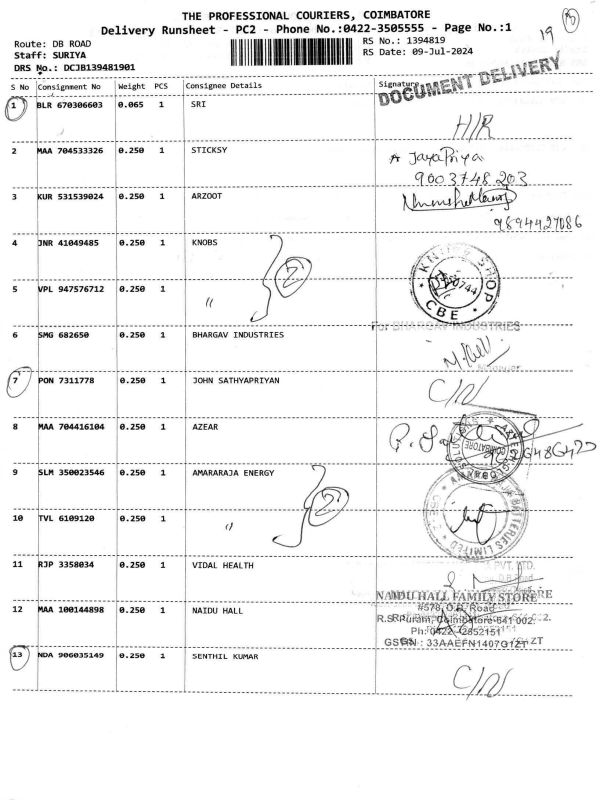 THE PROFESSIONAL COURIERS, COIMBATORE
Delivery Runsheet - PC2 - Phone No.:0422-3505555 - Page No.:1
19 3
Route: DB ROAD RS No.: 1394819
Staff: SURIYA RS Date: 09-Jul-2024
DRS No.: DCJB139481901
DOCUMENT DELIVERY
S No Consignment No Weight PCS Consignee Details Signature
1 BLR 670306603 0.065 1 SRI
H/R
2 MAA 704533326 0.250 1 STICKSY
JayaPriya
9003748203
3 KUR 531539024 0.250 1 ARZOOT
9894427086
4 JNR 41049485 0.250 1 KNOBS
2
KNOBS SHOP
CBE
5 VPL 947576712 0.250 1 "
For BHARGAV INDUSTRIES
6 SMG 682650 0.250 1 BHARGAV INDUSTRIES
7 PON 7311778 0.250 1 JOHN SATHYAPRIYAN
C/N
8 MAA 704416104 0.250 1 AZEAR
COIMBATORE
9 SLM 350023546 0.250 1 AMARARAJA ENERGY
2
BATTERIES LIMITED
10 TVL 6109120 0.250 1 "
11 RJP 3358034 0.250 1 VIDAL HEALTH
PVT. LTD.
NAIDU HALL FAMILY STORE
12 MAA 100144898 0.250 1 NAIDU HALL
#578, D.B. Road
R.S.Puram, Coimbatore-641 002.
Ph:0422-2552151
GSTIN : 33AAEFN1407G1ZT
13 NDA 906035149 0.250 1 SENTHIL KUMAR
C/N